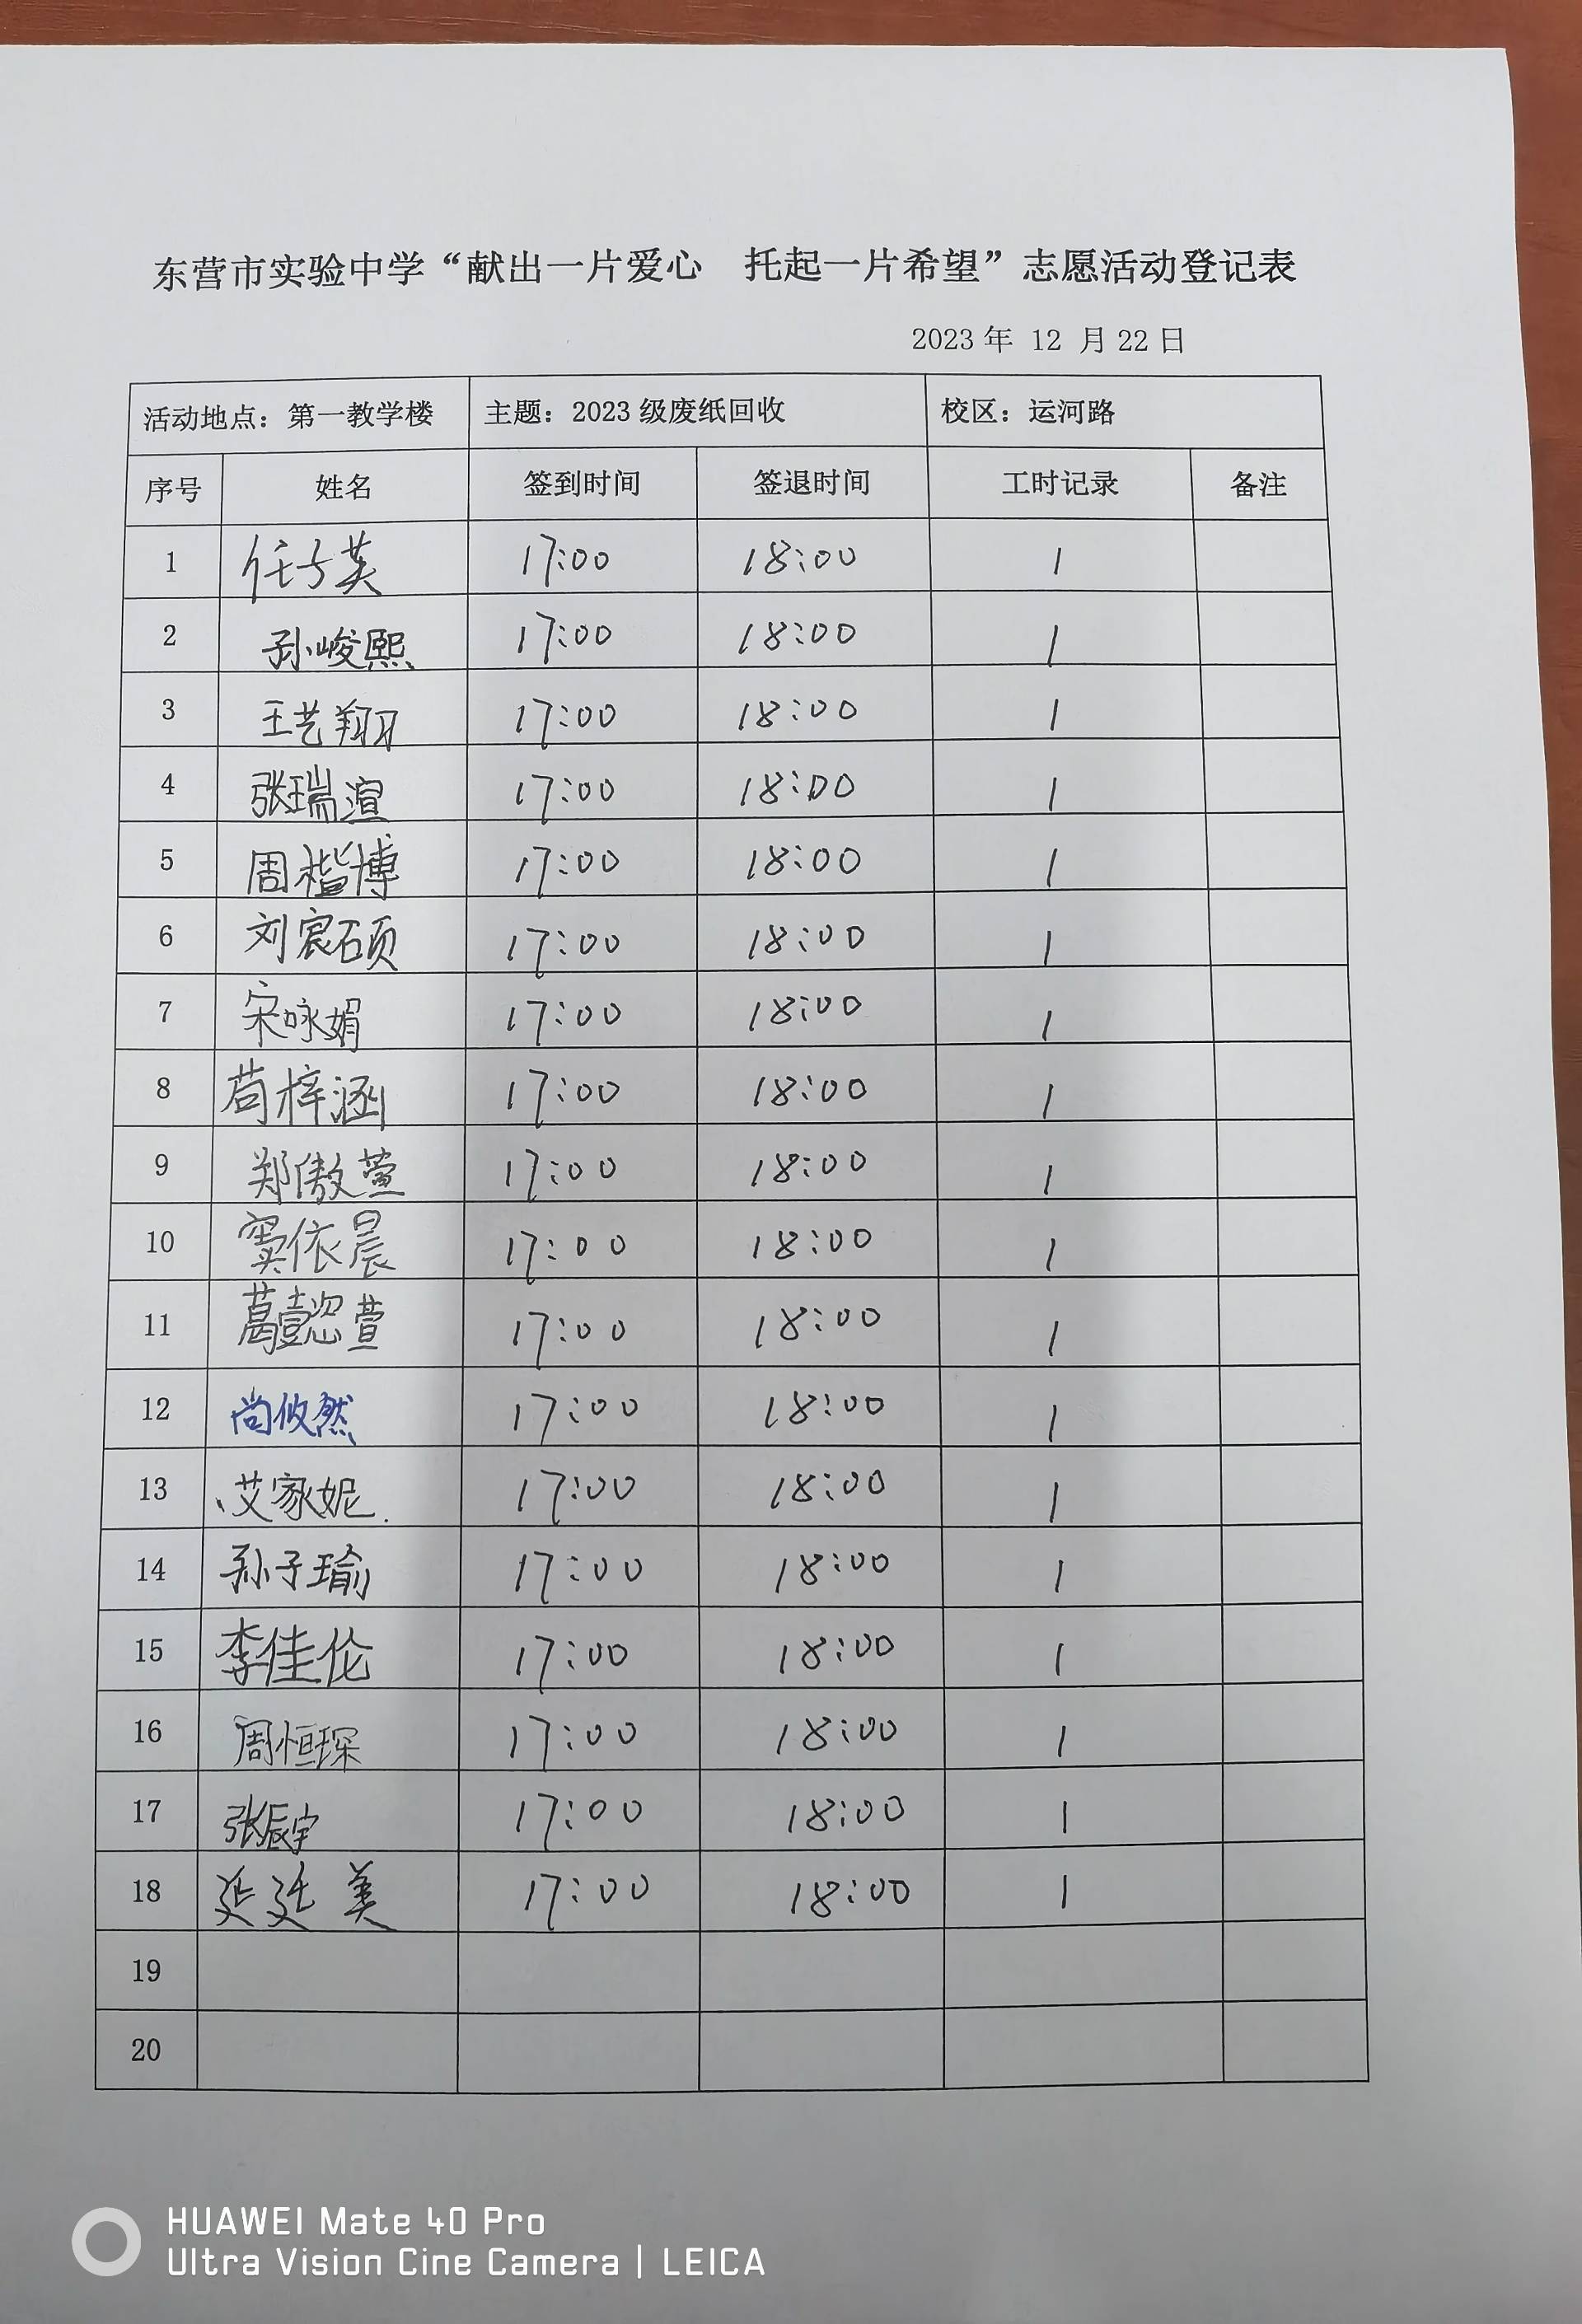 东营市实验中学“献出一片爱心 托起一片希望”志愿活动登记表
2023 年 12 月 22 日
活动地点：第一教学楼 主题：2023 级废纸回收 校区：运河路
序号 姓名 签到时间 签退时间 工时记录 备注
1 任子英 17:00 18:00 1
2 孙峻熙 17:00 18:00 1
3 王艺翔 17:00 18:00 1
4 张瑞渲 17:00 18:00 1
5 周楷博 17:00 18:00 1
6 刘宸硕 17:00 18:00 1
7 宋咏娟 17:00 18:00 1
8 苟梓涵 17:00 18:00 1
9 郑傲萱 17:00 18:00 1
10 窦依晨 17:00 18:00 1
11 葛懿萱 17:00 18:00 1
12 尚攸然 17:00 18:00 1
13 艾家妮 17:00 18:00 1
14 孙子瑜 17:00 18:00 1
15 李佳伦 17:00 18:00 1
16 周恒琛 17:00 18:00 1
17 张宸宇 17:00 18:00 1
18 延廷美 17:00 18:00 1
19
20
HUAWEI Mate 40 Pro
Ultra Vision Cine Camera | LEICA